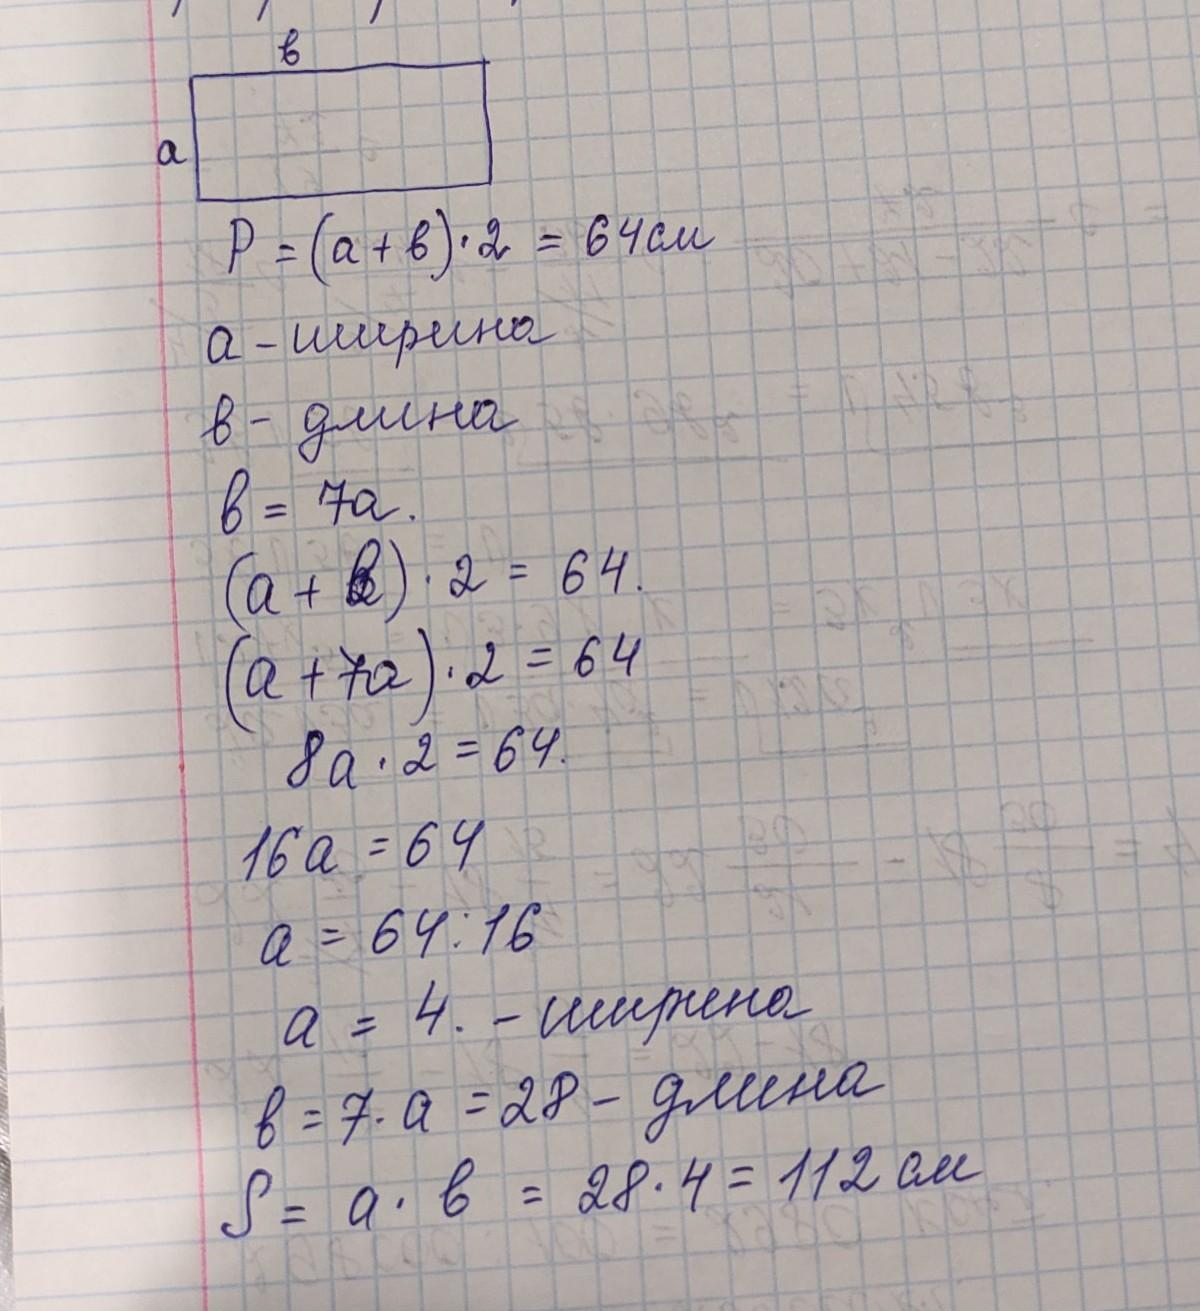 в
а
P = (а + в) · 2 = 64см
а - ширина
в - длина
в = 7а.
(а + в) · 2 = 64.
(а + 7а) · 2 = 64
8а · 2 = 64.
16а = 64
а = 64 : 16
а = 4. - ширина
в = 7 · а = 28 - длина
S = а · в = 28 · 4 = 112 см